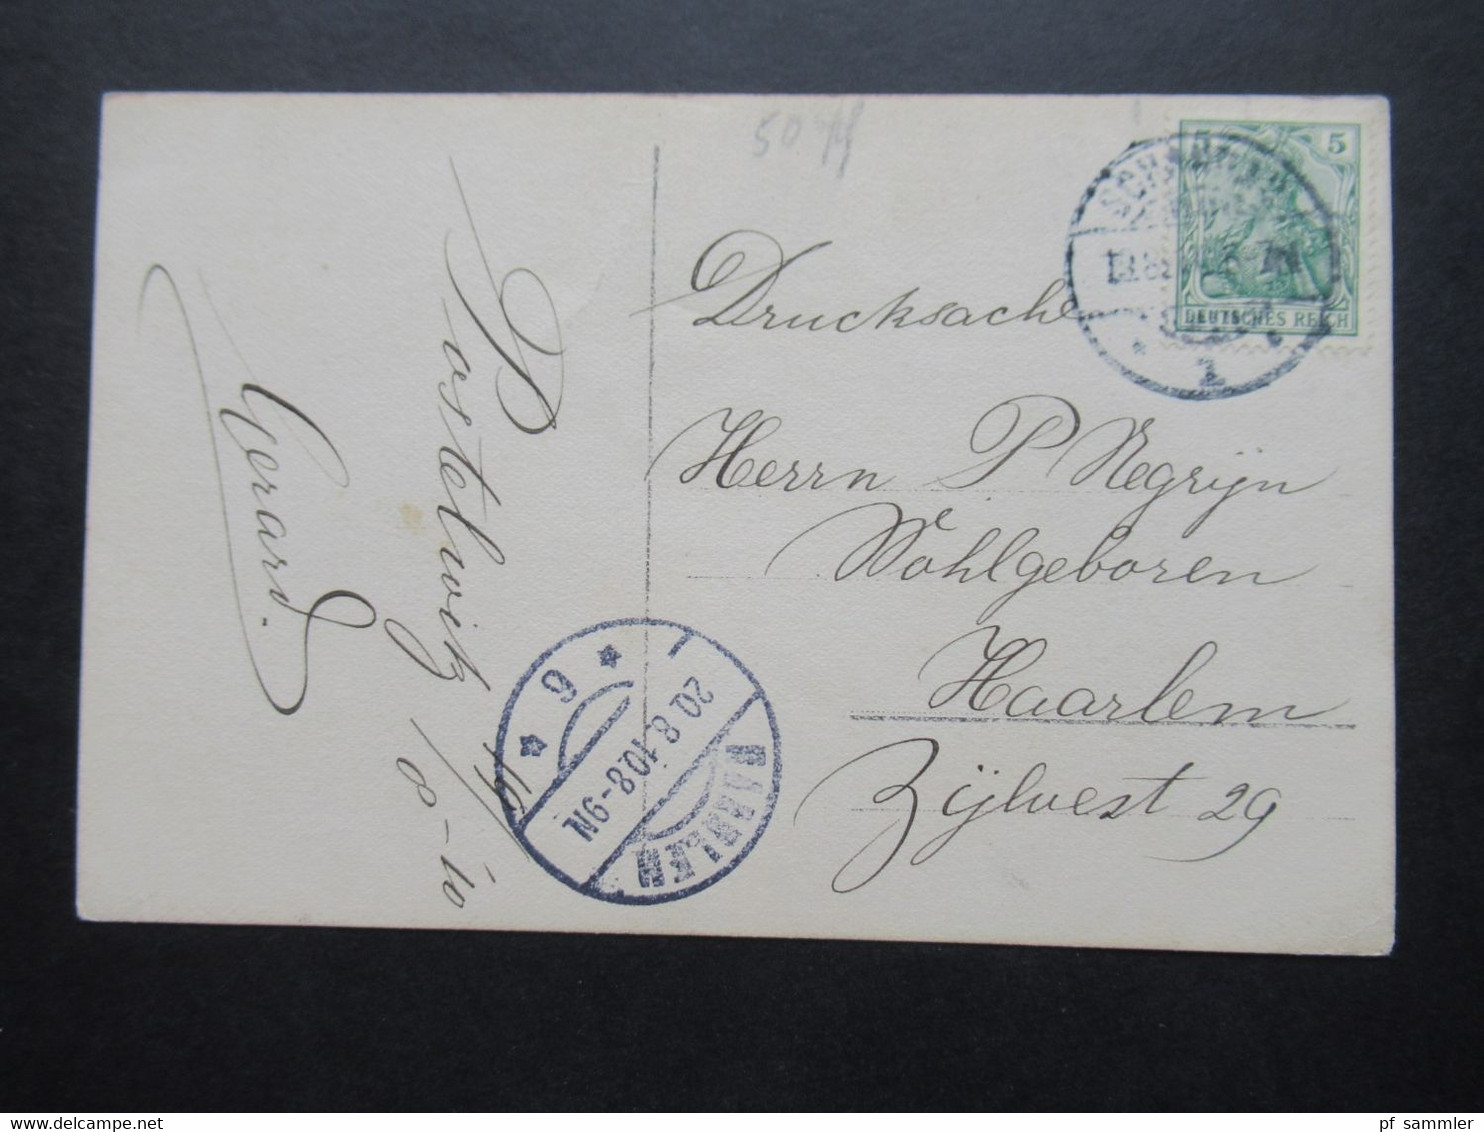 50
5 5
DEUTSCHES REICH
1
Drucksache
Herrn P Negrijn
Wohlgeboren
Haarlem
Zijlvest 29
Postelwitz
8-10
Gerard.
HAARLEM
20.8.10.8-9N.
* 9 *
pf_sammler